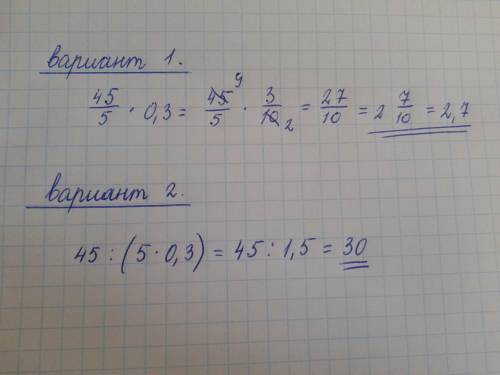 вариант 1.
45/5 · 0,3 = 45 9/5 · 3/10 2 = 27/10 = 2 7/10 = 2,7
вариант 2.
45 : (5 · 0,3) = 45 : 1,5 = 30